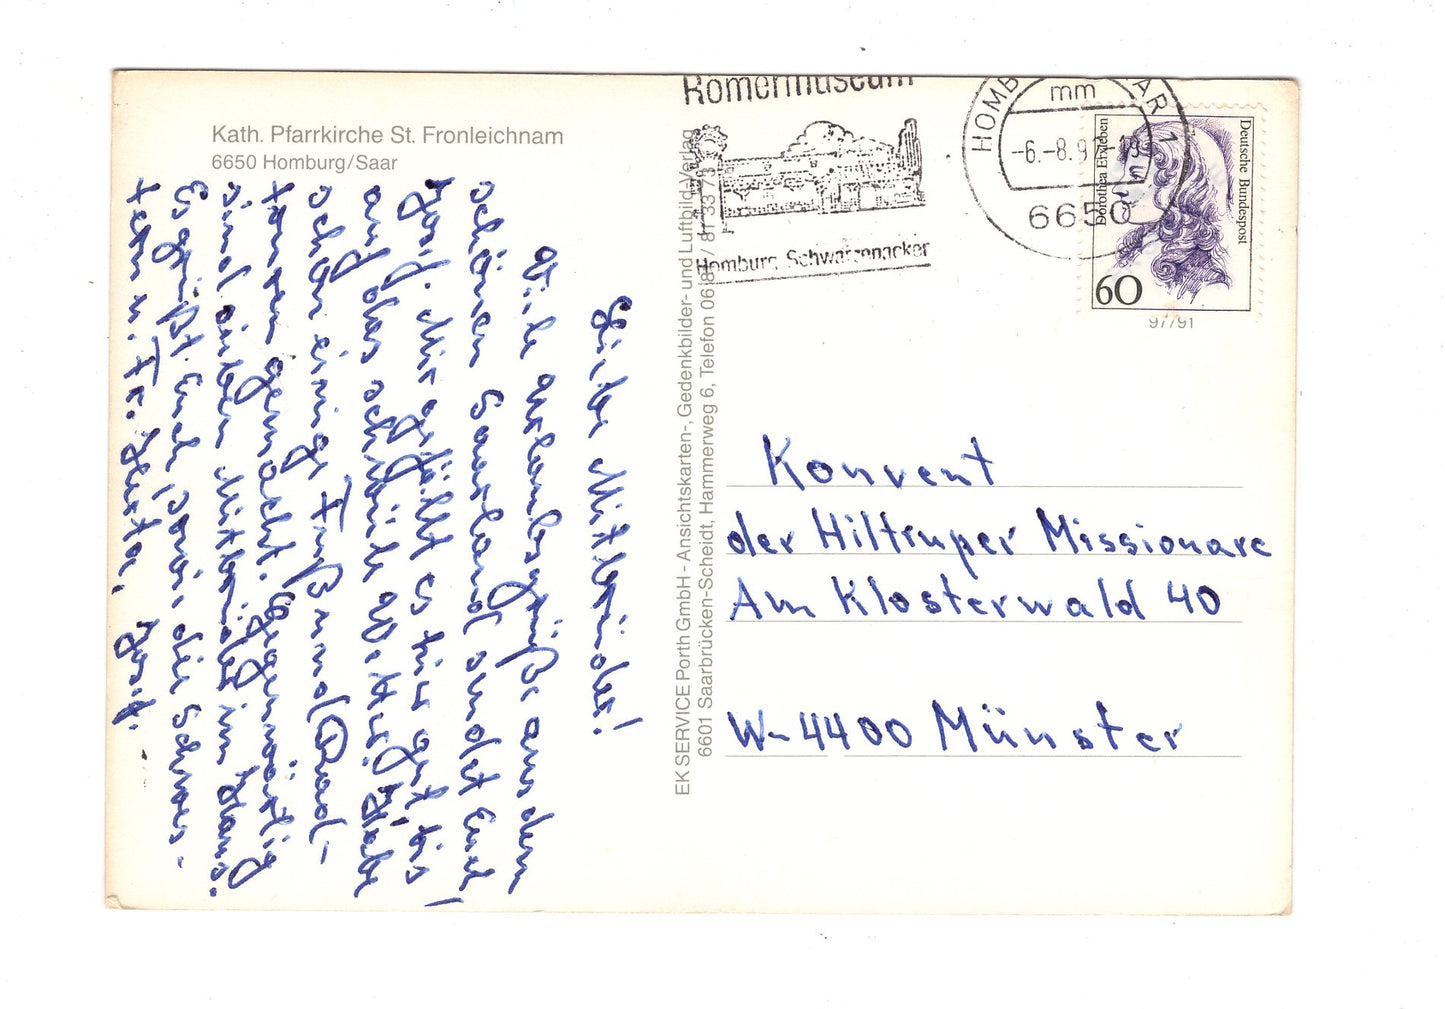 Kath. Pfarrkirche St. Fronleichnam
6650 Homburg/Saar
Liebe Mitbrüder!
Viele Urlaubsgrüße aus dem
schönen Saarland sendet Euch
Mir gefällt es hier gut, bis
auf das schwüle Wetter. Habe
schon einige Fuß und Rad-
touren gemacht. Gegenwärtig
sind sieben Mitbrüder im Haus.
Es grüßt Euch die Schwes-
tern u. Fr.
EK SERVICE Porth GmbH - Ansichtskarten-, Gedenkbilder- und Luftbild-Verlag
6601 Saarbrücken-Scheidt, Hammerweg 6, Telefon 06 81 / 81 33 73
Römermuseum
Homburg Schwarzenacker
HOMB AR 1
mm
-6.-8.9
6650
Dorothea Erxleben
Deutsche Bundespost
60
97/91
Konvent
der Hiltruper Missionare
Am Klosterwald 40
W-4400 Münster